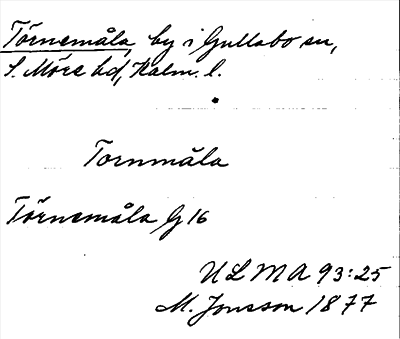 Törnemåla, by i Gullabo sn,
S. Möre hd, Kalm. l.
Tornmåla
Törnemåla G 16
ULMA 93:25
M. Jonsson 1877